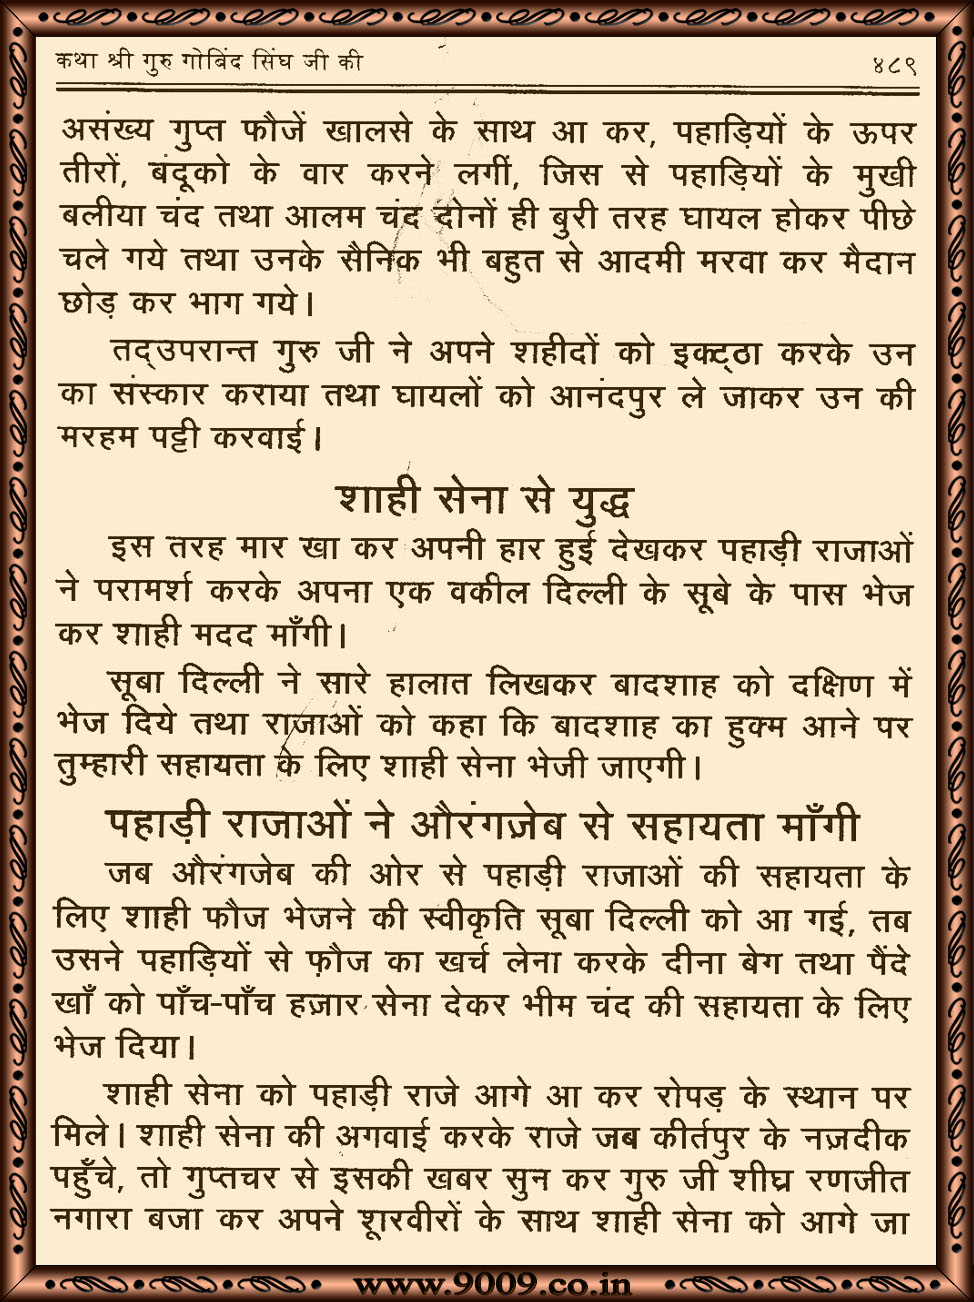 कथा श्री गुरु गोबिंद सिंघ जी की ४८९
असंख्य गुप्त फौजें खालसे के साथ आ कर, पहाड़ियों के ऊपर
तीरों, बंदूको के वार करने लगीं, जिस से पहाड़ियों के मुखी
बलीया चंद तथा आलम चंद दोनों ही बुरी तरह घायल होकर पीछे
चले गये तथा उनके सैनिक भी बहुत से आदमी मरवा कर मैदान
छोड़ कर भाग गये।
तद्उपरान्त गुरु जी ने अपने शहीदों को इक्ट्ठा करके उन
का संस्कार कराया तथा घायलों को आनंदपुर ले जाकर उन की
मरहम पट्टी करवाई।
शाही सेना से युद्ध
इस तरह मार खा कर अपनी हार हुई देखकर पहाड़ी राजाओं
ने परामर्श करके अपना एक वकील दिल्ली के सूबे के पास भेज
कर शाही मदद माँगी।
सूबा दिल्ली ने सारे हालात लिखकर बादशाह को दक्षिण में
भेज दिये तथा राजाओं को कहा कि बादशाह का हुक्म आने पर
तुम्हारी सहायता के लिए शाही सेना भेजी जाएगी।
पहाड़ी राजाओं ने औरंगज़ेब से सहायता माँगी
जब औरंगजेब की ओर से पहाड़ी राजाओं की सहायता के
लिए शाही फौज भेजने की स्वीकृति सूबा दिल्ली को आ गई, तब
उसने पहाड़ियों से फ़ौज का खर्च लेना करके दीना बेग तथा पैंदे
खाँ को पाँच-पाँच हज़ार सेना देकर भीम चंद की सहायता के लिए
भेज दिया।
शाही सेना को पहाड़ी राजे आगे आ कर रोपड़ के स्थान पर
मिले। शाही सेना की अगवाई करके राजे जब कीर्तपुर के नज़दीक
पहुँचे, तो गुप्तचर से इसकी खबर सुन कर गुरु जी शीघ्र रणजीत
नगारा बजा कर अपने शूरवीरों के साथ शाही सेना को आगे जा
www.9009.co.in